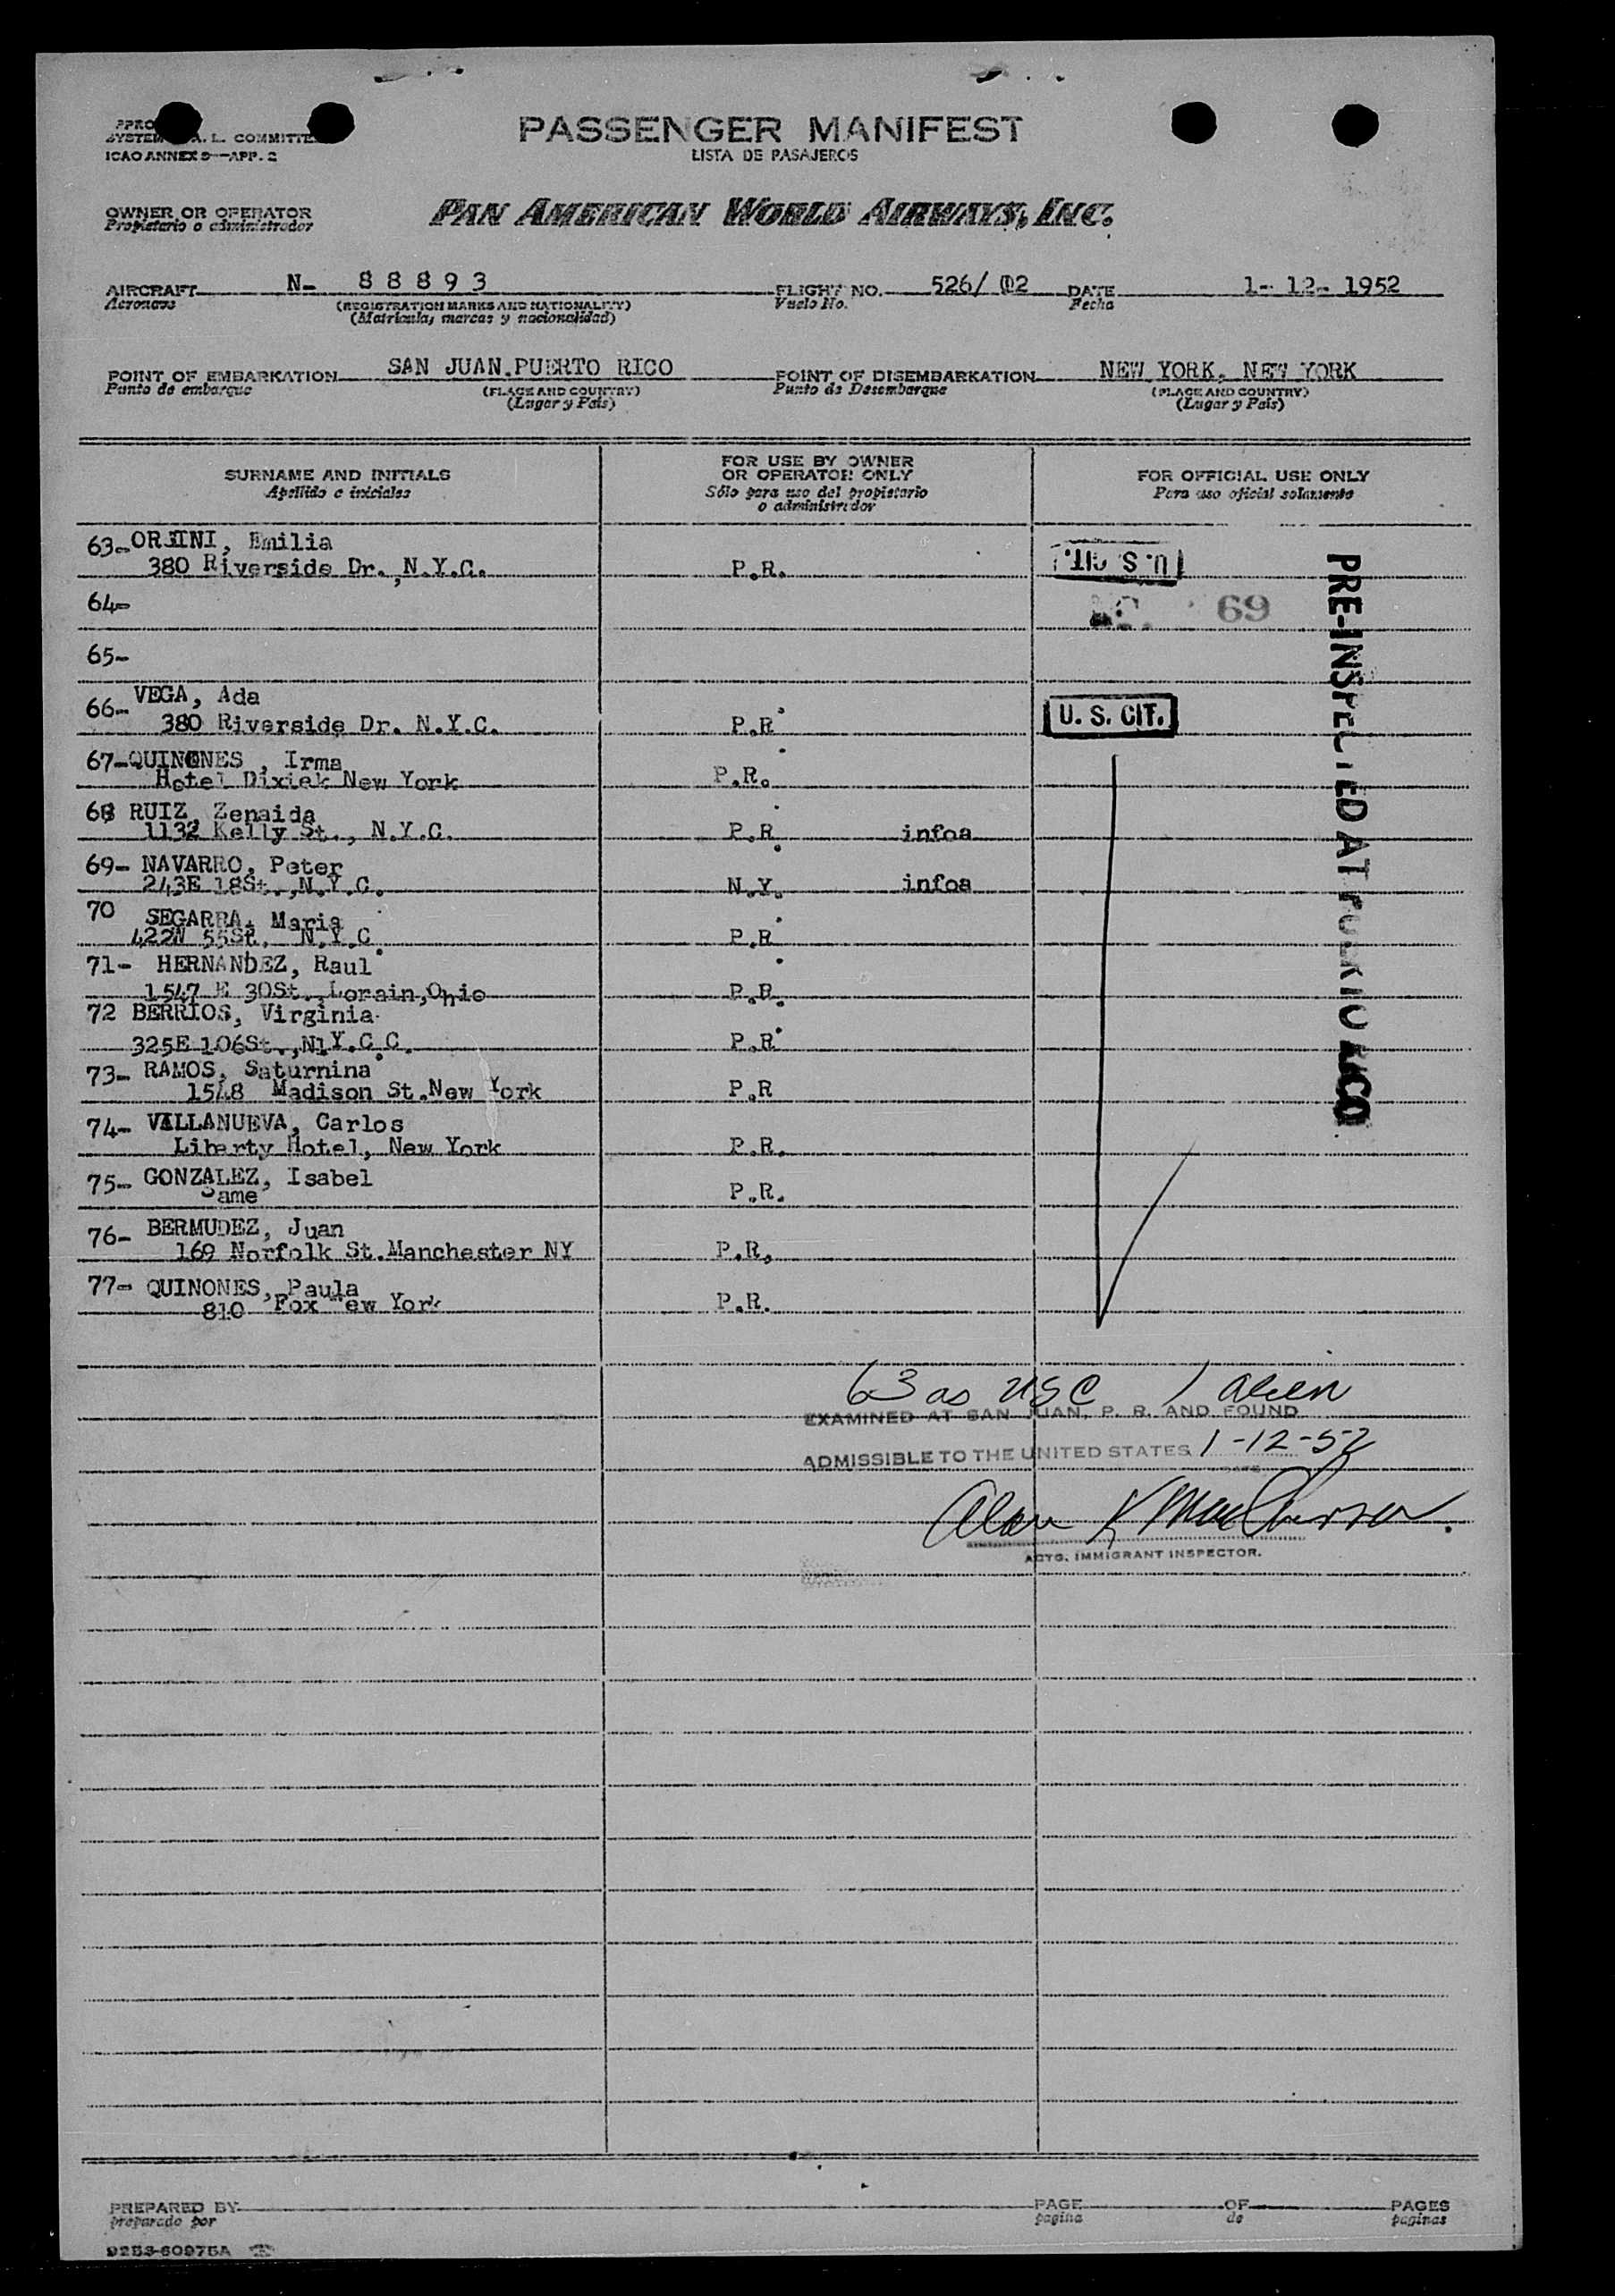 SYSTEM A. L. COMMITTE
ICAO ANNEX 9—APP. 2
PASSENGER MANIFEST
LISTA DE PASAJEROS
OWNER OR OPERATOR
Propietario o administrador
PAN AMERICAN WORLD AIRWAYS, INC.
AIRCRAFT N- 8 8 8 9 3 FLIGHT NO. 526/ 02 DATE 1- 12- 1952
Aeronave (REGISTRATION MARKS AND NATIONALITY) Vuelo No. Fecha
(Matrícula, marcas y nacionalidad)
POINT OF EMBARKATION SAN JUAN.PUERTO RICO POINT OF DISEMBARKATION NEW YORK, NEW YORK
Punto de embarque (PLACE AND COUNTRY) Punto de Desembarque (PLACE AND COUNTRY)
(Lugar y País) (Lugar y País)
SURNAME AND INITIALS FOR USE BY OWNER OR OPERATOR ONLY FOR OFFICIAL USE ONLY
Apellido e iniciales Sólo para uso del propietario o administrador Para uso oficial solamente
63-ORSINI, Emilia
380 Riverside Dr. ,N.Y.C. P.R. U.S. CIT.
64- 69
65-
66- VEGA, Ada
380 Riverside Dr. N.Y.C. P.R U. S. CIT.
67-QUINONES , Irma
Hotel Dixiek New York P.R.
68 RUIZ, Zenaida
1132 Kelly St., N.Y.C. P.R. infoa
69- NAVARRO, Peter
243E 18St.,N.Y.C. N.Y. infoa
70 SEGARRA, Maria
422W 55St. N.Y.C. P.R
71- HERNANDEZ, Raul
1547 E 30St. Lorain,Ohio P.R.
72 BERRIOS, Virginia
325E 106St.,N1Y.C C. P.R
73- RAMOS, Saturnina
1548 Madison St.New York P.R
74- VILLANUEVA, Carlos
Liberty Hotel, New York P.R.
75- GONZALEZ, Isabel
Same P.R.
76- BERMUDEZ, Juan
169 Norfolk St.Manchester NY P.R,
77- QUINONES, Paula
810 Fox New York P.R.
PRE-INSPECTED AT PUERTO RICO
63 as USC 1 alien
EXAMINED AT SAN JUAN, P. R. AND FOUND
ADMISSIBLE TO THE UNITED STATES 1-12-52
DATE
Alan K MacPherson
ACTG. IMMIGRANT INSPECTOR.
PREPARED BY PAGE OF PAGES
preparado por pagina de paginas
92B3-60975A